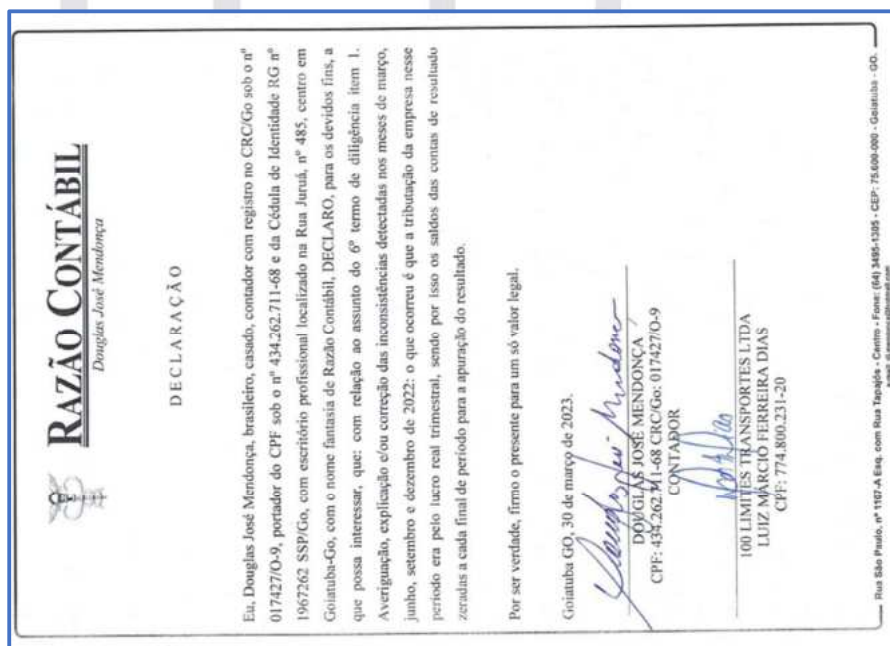 RAZÃO CONTÁBIL
Douglas José Mendonça
DECLARAÇÃO
Eu, Douglas José Mendonça, brasileiro, casado, contador com registro no CRC/Go sob o nº
017427/O-9, portador do CPF sob o nº 434.262.711-68 e da Cédula de Identidade RG nº
1967262 SSP/Go, com escritório profissional localizado na Rua Juruá, nº 485, centro em
Goiatuba-Go, com o nome fantasia de Razão Contábil, DECLARO, para os devidos fins, a
que possa interessar, que: com relação ao assunto do 6º termo de diligência item 1.
Averiguação, explicação e/ou correção das inconsistências detectadas nos meses de março,
junho, setembro e dezembro de 2022: o que ocorreu é que a tributação da empresa nesse
período era pelo lucro real trimestral, sendo por isso os saldos das contas de resultado
zeradas a cada final de período para a apuração do resultado.
Por ser verdade, firmo o presente para um só valor legal.
Goiatuba GO, 30 de março de 2023.
DOUGLAS JOSÉ MENDONÇA
CPF: 434.262.711-68 CRC/Go: 017427/O-9
CONTADOR
100 LIMITES TRANSPORTES LTDA
LUIZ MARCIO FERREIRA DIAS
CPF: 774.800.231-20
Rua São Paulo, nº 1107-A Esq. com Rua Tapajós - Centro - Fone: (64) 3495-1305 - CEP: 75.600-000 - Goiatuba - GO.